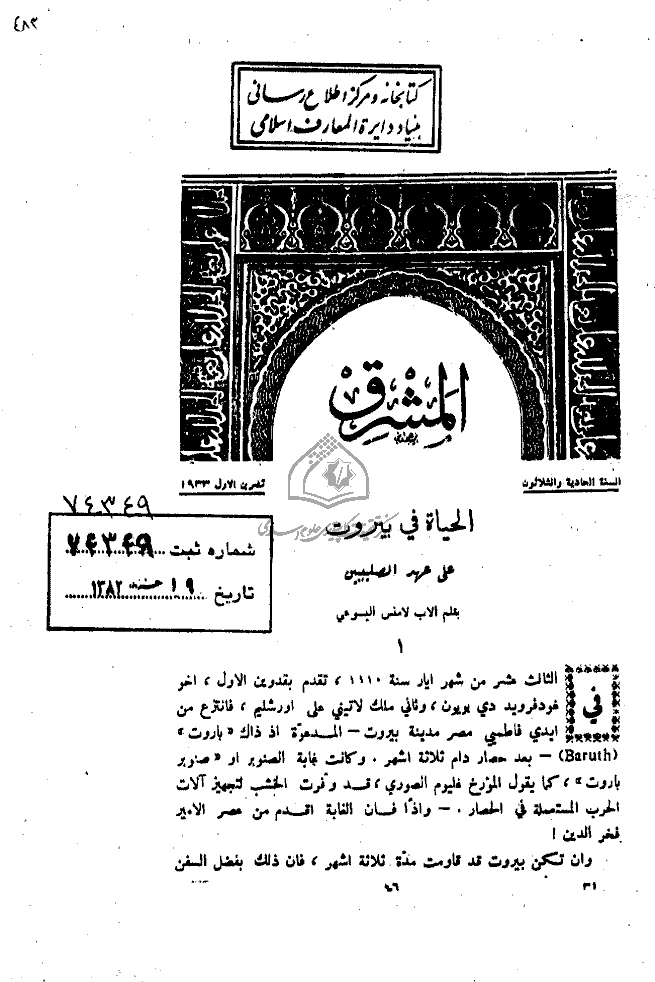 ٤٨٢
كتابخانه و مركز اطلاع رسانى
بنياد دايرة المعارف اسلامى
المشرق
السنة الحادية والثلاثون
تشرين الاول ١٩٣٣
٧٤٣٤٩
شماره ثبت ٧٤٣٤٩
تاريخ ١٩ ١٣٨٢
الحياة في بيروت
على عهد الصليبيين
بقلم الاب لامنس اليسوعي
١
في الثالث عشر من شهر ايار سنة ١١١٠ ، تقدم بقدوين الاول ، اخو
غودفرويد دي بويون ، وثاني ملك لاتيني على اورشليم ، فانتزع من
ايدي فاطميي مصر مدينة بيروت – المدعوّة اذ ذاك «باروت»
(Baruth) – بعد حصار دام ثلاثة اشهر . وكانت غابة الصنوبر او «صنوبر
باروت» ، كما يقول المؤرخ غليوم الصوري ، قد وفرت الخشب لتجهيز آلات
الحرب المستعملة في الحصار . – واذًا فان الغابة اقدم من عصر الامير
فخر الدين !
وان تكن بيروت قد قاومت مدّة ثلاثة اشهر ، فان ذلك بفضل السفن
٣١
٤٦